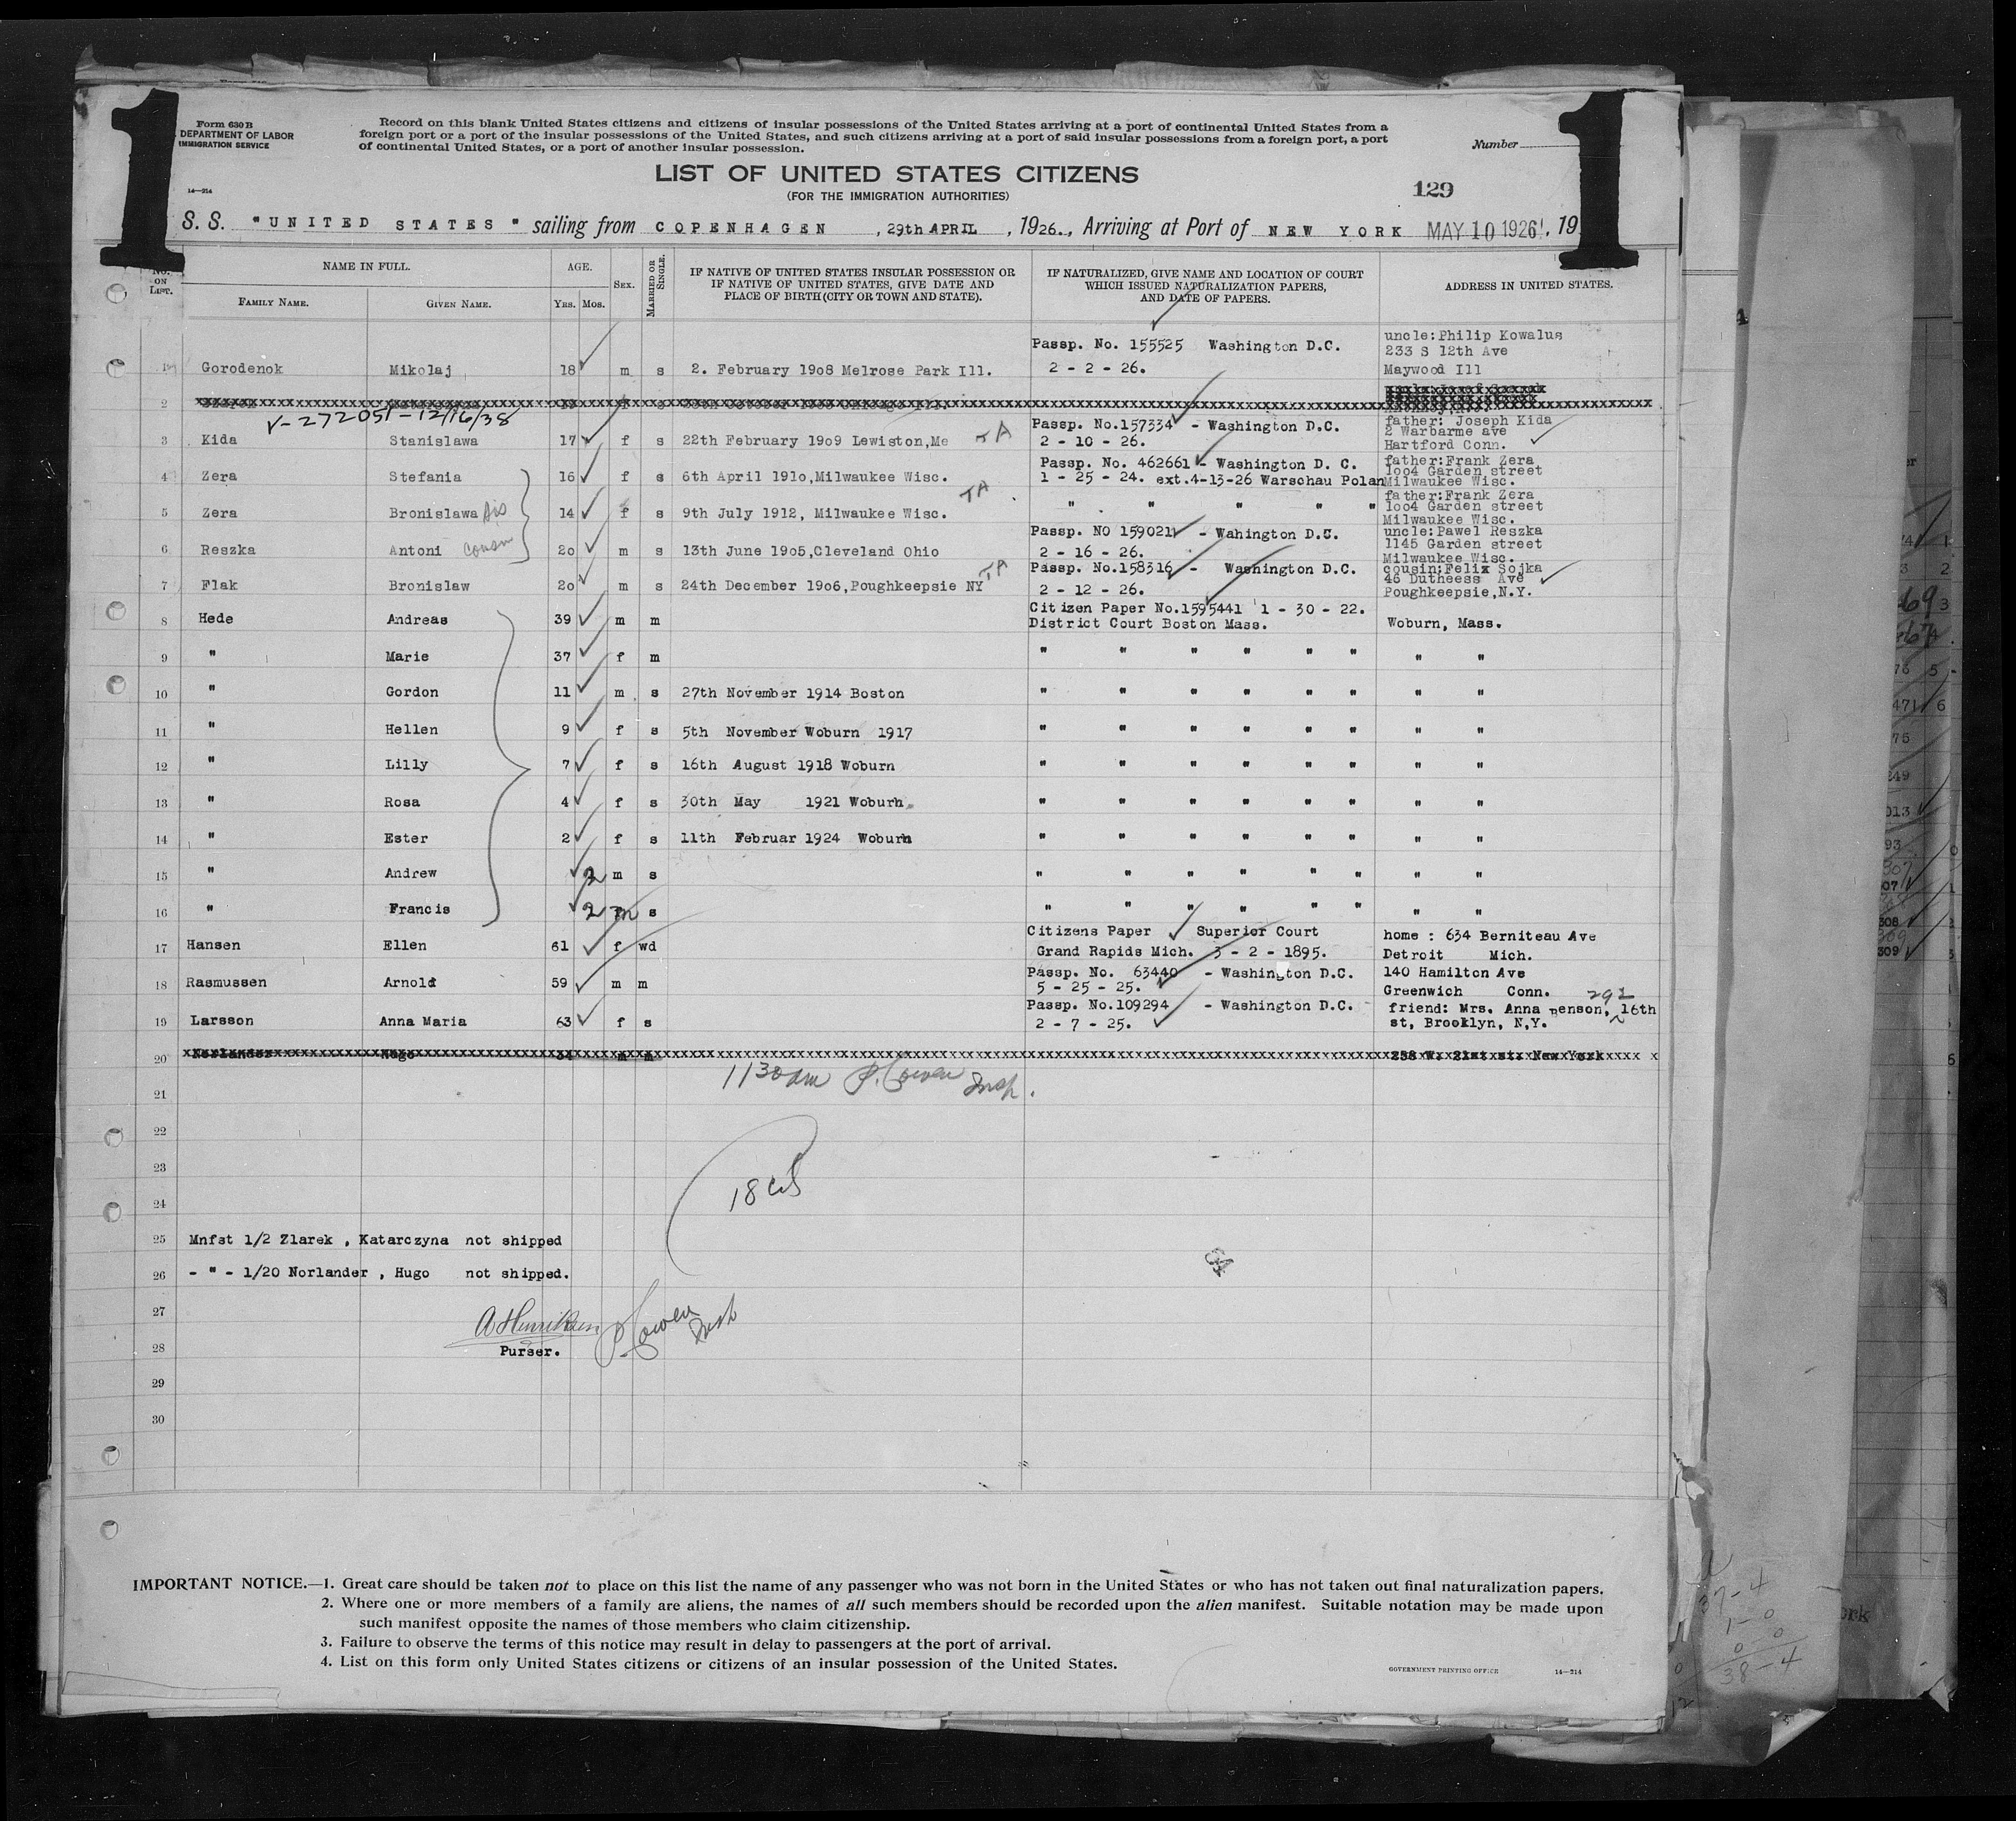 1 1
Form 630 B
DEPARTMENT OF LABOR
IMMIGRATION SERVICE
14—214
Record on this blank United States citizens and citizens of insular possessions of the United States arriving at a port of continental United States from a
foreign port or a port of the insular possessions of the United States, and such citizens arriving at a port of said insular possessions from a foreign port, a port
of continental United States, or a port of another insular possession.
Number
LIST OF UNITED STATES CITIZENS
(FOR THE IMMIGRATION AUTHORITIES)
129
S. S. "UNITED STATES" sailing from COPENHAGEN, 29th APRIL, 1926., Arriving at Port of NEW YORK MAY 10 1926, 19
No. ON LIST.
NAME IN FULL.
FAMILY NAME. GIVEN NAME.
AGE.
YRS. MOS.
SEX.
MARRIED OR SINGLE.
IF NATIVE OF UNITED STATES INSULAR POSSESSION OR
IF NATIVE OF UNITED STATES, GIVE DATE AND
PLACE OF BIRTH (CITY OR TOWN AND STATE).
IF NATURALIZED, GIVE NAME AND LOCATION OF COURT
WHICH ISSUED NATURALIZATION PAPERS,
AND DATE OF PAPERS.
ADDRESS IN UNITED STATES.
Passp. No. 155525 Washington D.C. uncle:Philip Kowalus
233 S 12th Ave
1 Gorodenok Mikolaj 18 m s 2. February 19o8 Melrose Park Ill. 2 - 2 - 26. Maywood Ill
2
V-272051-12/16/38
Passp. No.157334 - Washington D.C. father: Joseph Kida
2 Warbarme ave
3 Kida Stanislawa 17 f s 22th February 19o9 Lewiston,Me TA 2 - 10 - 26. Hartford Conn.
Passp. No. 462661 - Washington D. C. father:Frank Zera
1oo4 Garden street
4 Zera Stefania 16 f s 6th April 191o,Milwaukee Wisc. 1 - 25 - 24. ext.4-13-26 Warschau Polan Milwaukee Wisc.
TA
father:Frank Zera
1oo4 Garden street
5 Zera Bronislawa sis 14 f s 9th July 1912, Milwaukee Wisc. " " " " " Milwaukee Wisc.
Passp. NO 159021 - Wahington D.C. uncle:Pawel Reszka
1145 Garden street
6 Reszka Antoni cousin 2o m s 13th June 19o5,Cleveland Ohio 2 - 16 - 26. Milwaukee Wisc.
Passp. No.158316 - Washington D.C. cousin:Felix Sojka
46 Dutheess Ave
7 Flak Bronislaw 2o m s 24th December 19o6,Poughkeepsie NY TA 2 - 12 - 26. Poughkeepsie,N.Y.
Citizen Paper No.1595441 1 - 30 - 22.
8 Hede Andreas 39 m m District Court Boston Mass. Woburn, Mass.
9 " Marie 37 f m " " " " " " " "
10 " Gordon 11 m s 27th November 1914 Boston " " " " " " " "
11 " Hellen 9 f s 5th November Woburn 1917 " " " " " " " "
12 " Lilly 7 f s 16th August 1918 Woburn " " " " " " " "
13 " Rosa 4 f s 30th May 1921 Woburn. " " " " " " " "
14 " Ester 2 f s 11th Februar 1924 Woburn " " " " " " " "
15 " Andrew 2 m s " " " " " " " "
16 " Francis 2 m s " " " " " " " "
Citizens Paper Superior Court home : 634 Berniteau Ave
17 Hansen Ellen 61 f wd Grand Rapids Mich. 3 - 2 - 1895. Detroit Mich.
Passp. No. 63440 - Washington D.C. 140 Hamilton Ave
18 Rasmussen Arnold 59 m m 5 - 25 - 25. Greenwich Conn.
292
Passp. No.109294 - Washington D.C. friend: Mrs. Anna Benson, 16th
19 Larsson Anna Maria 63 f s 2 - 7 - 25. st, Brooklyn, N,Y.
20 Norlander Hugo 34 m m 258 W. 21st st. New York
1130am P. Cowen Insp.
21
22
23
18 cit
24
25 Mnfst 1/2 Zlarek , Katarczyna not shipped
26 - " - 1/20 Norlander , Hugo not shipped.
27
A Henriksen P Cowen Insp
28 Purser.
29
30
IMPORTANT NOTICE.—1. Great care should be taken not to place on this list the name of any passenger who was not born in the United States or who has not taken out final naturalization papers.
2. Where one or more members of a family are aliens, the names of all such members should be recorded upon the alien manifest. Suitable notation may be made upon
such manifest opposite the names of those members who claim citizenship.
3. Failure to observe the terms of this notice may result in delay to passengers at the port of arrival.
4. List on this form only United States citizens or citizens of an insular possession of the United States.
GOVERNMENT PRINTING OFFICE 14—214
37-4
1-0
0 0
38-4